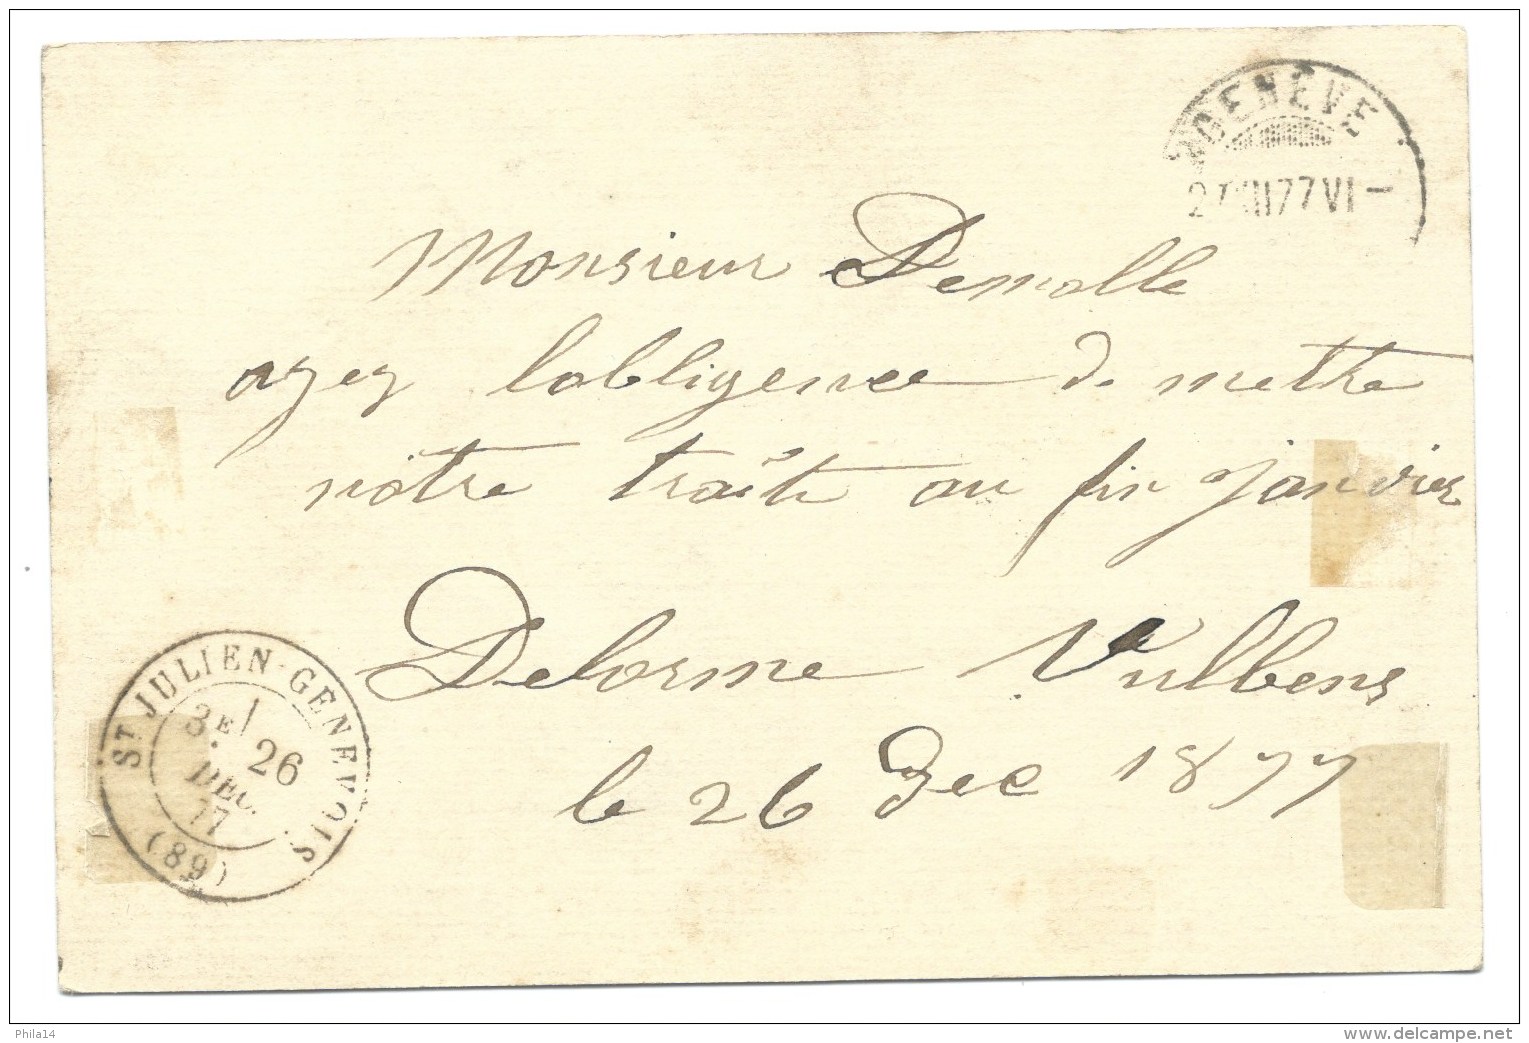 GENÈVE
27 XII 77 VI –
Monsieur Demolle
ayez lobligence de mettre
nôtre traîte au fin janvier
Delorme Vulbens
le 26 Dec 1877
ST JULIEN-GENEVOIS
3E
26
DEC.
77
(89)
Phila14
www.delcampe.net